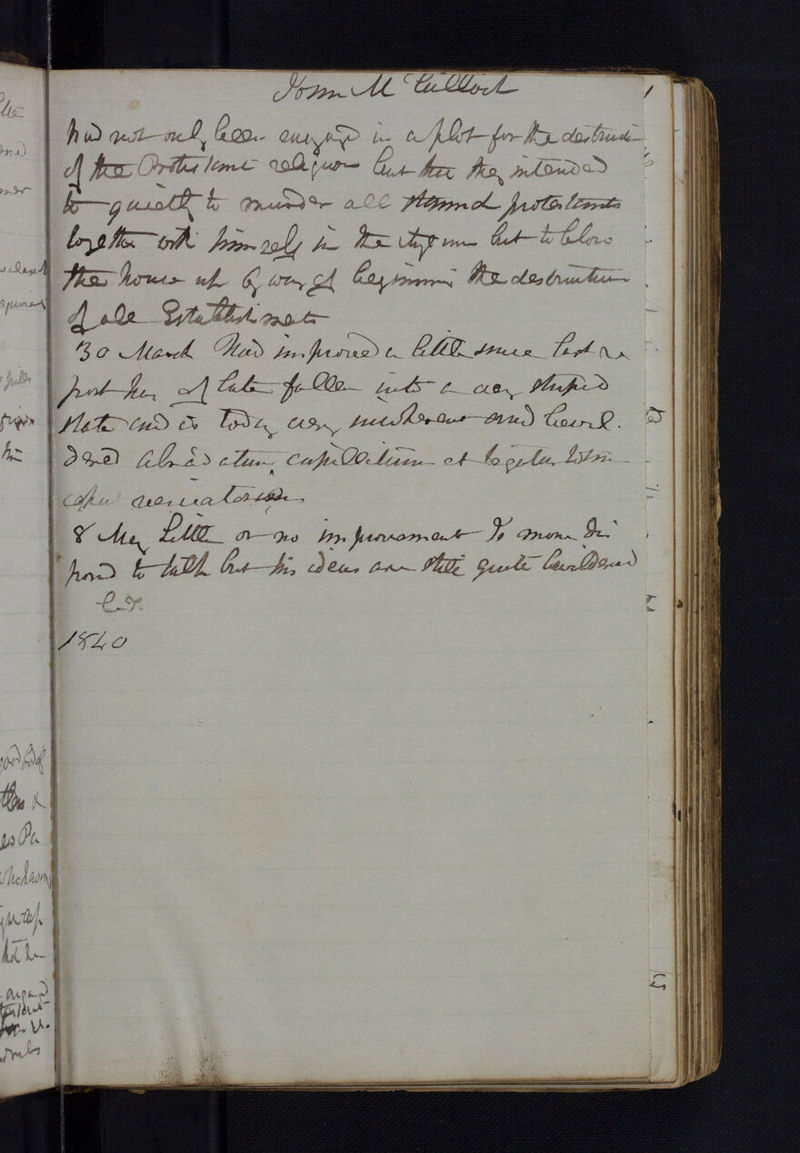 John McCulloch
had not only been engaged in a plot for the destructi
of the Protestant religion but that they intended
to quietly to murder all staunch protestants
together with himself in the Asylum but to blow
the house up by way of beginning the destruction
of all Establishments
30 March Had improved a little since last re
port has of late fallen into a very stupid
state and is today very incoherent and bewil.
dered Abradatum capillitium et
caput
8 May Little or no improvement Is more dis
posed to talk but his ideas are still quite bewildered
1840